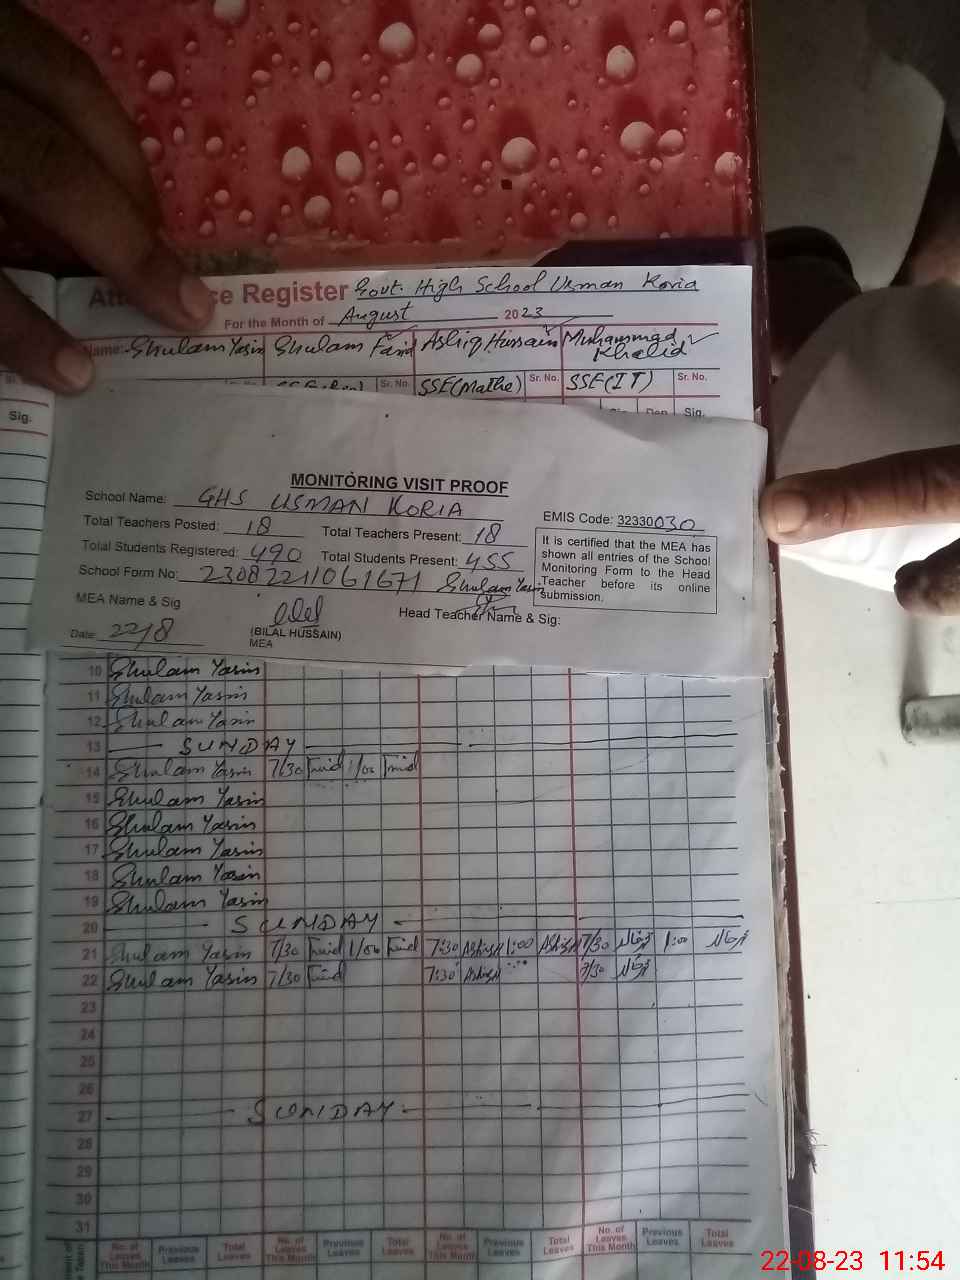 Attendance Register Govt. High School Usman Koria
For the Month of August 2023
Name: Ghulam Yasin Ghulam Farid Ashiq Hussain Muhammad Khalid
Sr. No. SSE(Maths) Sr. No. SSE(IT) Sr. No.
Sig. Dep Sig.
MONITORING VISIT PROOF
School Name: GHS USMAN KORIA
EMIS Code: 32330030
Total Teachers Posted: 18 Total Teachers Present: 18
Total Students Registered: 490 Total Students Present: 455
School Form No: 23082211061671 Ghulam Yasin
It is certified that the MEA has
shown all entries of the School
Monitoring Form to the Head
Teacher before its online
submission.
MEA Name & Sig
(BILAL HUSSAIN)
MEA
Head Teacher Name & Sig:
Date: 22/8
10 Ghulam Yasin
11 Ghulam Yasin
12 Ghulam Yasin
13 SUNDAY
14 Ghulam Yasin 7/30 Farid 1/00 Farid
15 Ghulam Yasin
16 Ghulam Yasin
17 Ghulam Yasin
18 Ghulam Yasin
19 Ghulam Yasin
20 SUNDAY
21 Ghulam Yasin 7/30 Farid 1/00 Farid 7:30 Ashiq 1:00 Ashiq 7/30 1:00
22 Ghulam Yasin 7/30 Farid 7:30 Ashiq 7/30
23
24
25
26
27 SUNDAY
28
29
30
31
No. of Leaves This Month Previous Leaves Total Leaves No. of Leaves This Month Previous Leaves Total Leaves No. of Leaves This Month Previous Leaves Total Leaves No. of Leaves This Month Previous Leaves Total Leaves
22-08-23 11:54